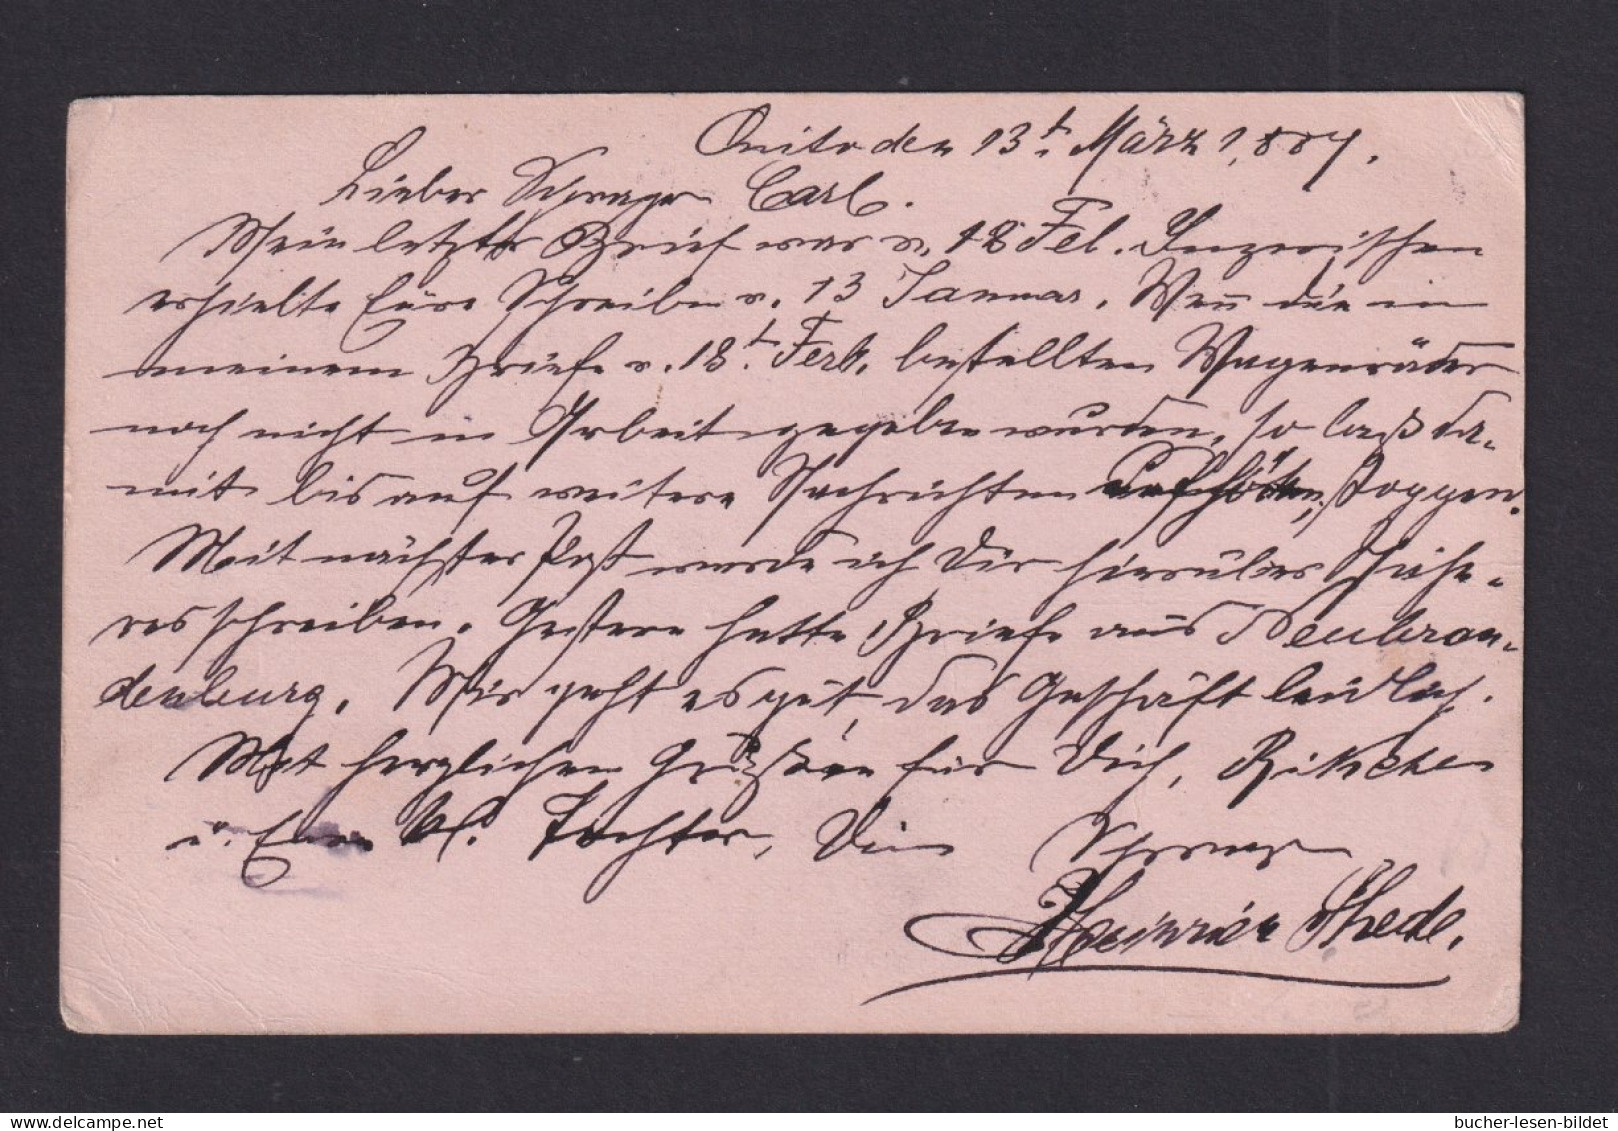 Quito den 13t. März 1,887.
Lieber Schwager Carl.
Mein letzter Brief war v. 18 Feb. Inzwischen
erhielte Eure Schreiben v. 13 Januar. Wenn die in
meinem Briefe v. 18t. Feb. bestellten Wagenräder
noch nicht in Arbeit gegeben wurden, so laß da-
mit bis auf weitere Nachrichten stoppen.
Mit nächster Post werde ich Dir hierüber Nähe-
res schreiben. Gestern hatte Briefe aus Neubran-
denburg. Mir geht es gut, das Geschäft leidlich.
Mit herzlichen Grüßen für Dich, Rikchen
u. Eure kl. Tochter, Dein Schwager
Heinrich Thede.
bucher-lesen-bildet